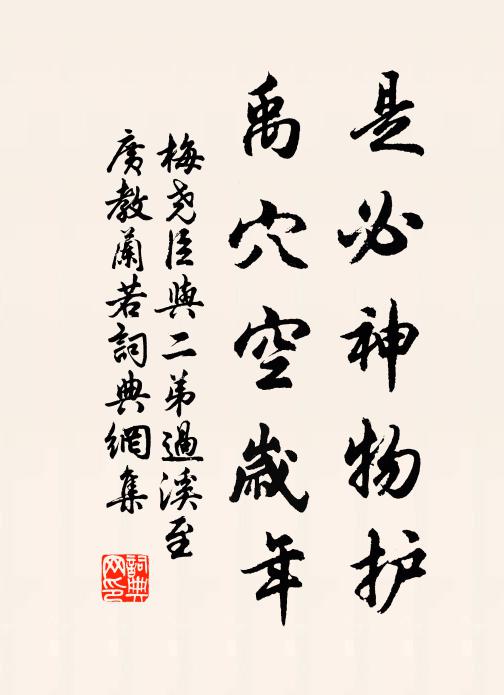 是必神物护
禹穴空岁年
梅尧臣與二弟過溪至
廣教蘭若詞典網集
詞典
网印